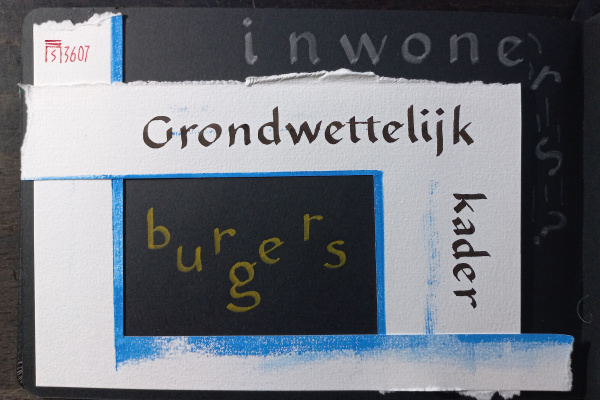 s13607
inwoners?
Grondwettelijk
kader
burgers